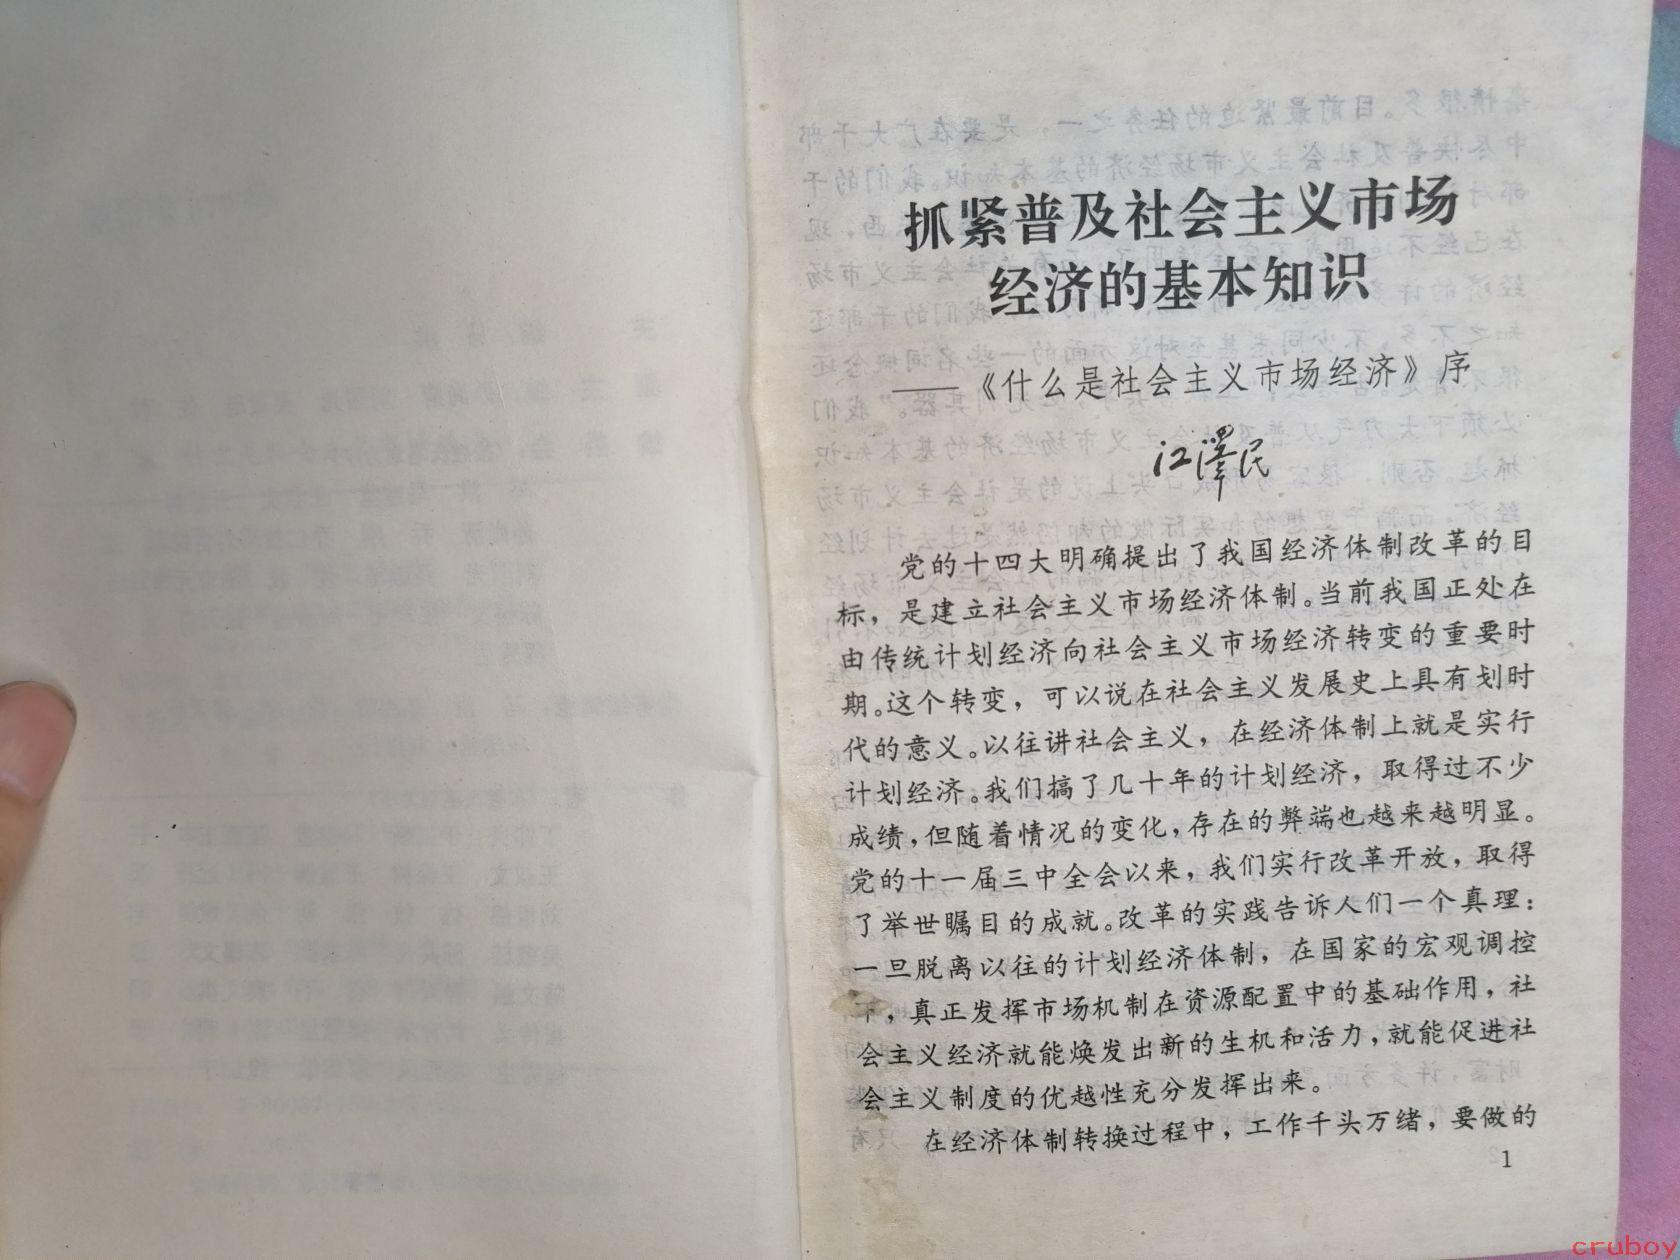 抓紧普及社会主义市场
经济的基本知识
——《什么是社会主义市场经济》序
江澤民
党的十四大明确提出了我国经济体制改革的目
标，是建立社会主义市场经济体制。当前我国正处在
由传统计划经济向社会主义市场经济转变的重要时
期。这个转变，可以说在社会主义发展史上具有划时
代的意义。以往讲社会主义，在经济体制上就是实行
计划经济。我们搞了几十年的计划经济，取得过不少
成绩，但随着情况的变化，存在的弊端也越来越明显。
党的十一届三中全会以来，我们实行改革开放，取得
了举世瞩目的成就。改革的实践告诉人们一个真理：
一旦脱离以往的计划经济体制，在国家的宏观调控
下，真正发挥市场机制在资源配置中的基础作用，社
会主义经济就能焕发出新的生机和活力，就能促进社
会主义制度的优越性充分发挥出来。
在经济体制转换过程中，工作千头万绪，要做的
1
cruboy